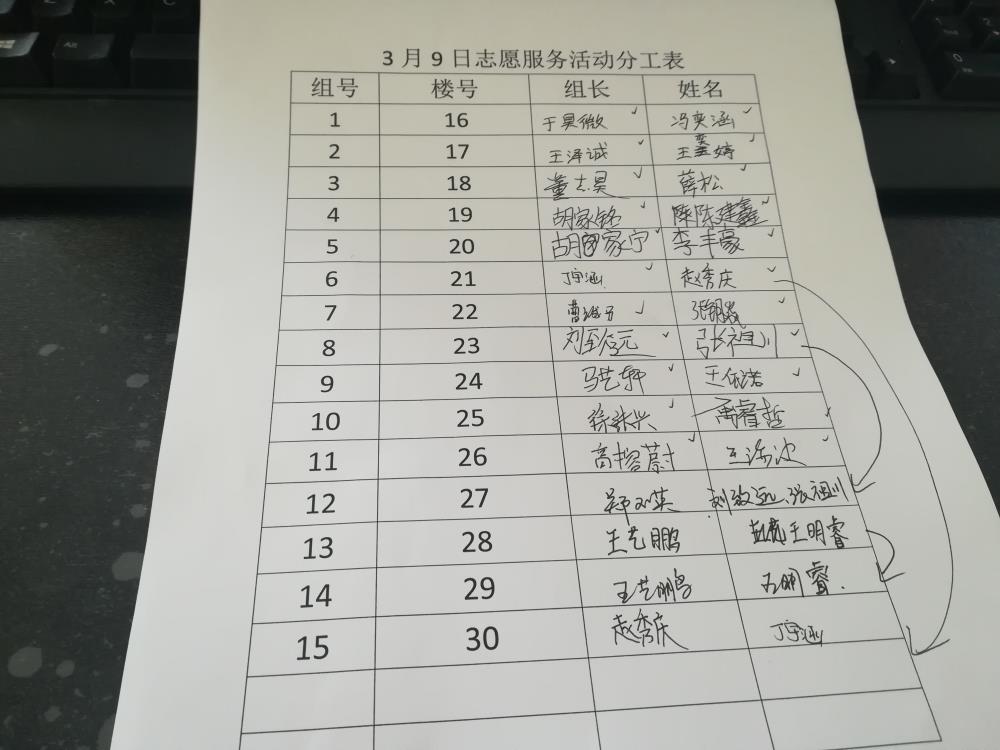 3月9日志愿服务活动分工表
组号 楼号 组长 姓名
1 16 于昊微 冯奕涵
2 17 王泽诚 王奕婷
3 18 董志昊 薛松
4 19 胡家铭 陈建鑫
5 20 胡家宁 李丰豪
6 21 丁宇涵 赵秀庆
7 22
8 23 张祖川
9 24 马艺轩 王依诺
10 25 禹睿哲
11 26 高榕蔚
12 27 刘致远、张祖川
13 28 王艺鹏 王明睿
14 29 王艺鹏 王明睿
15 30 赵秀庆 丁宇涵